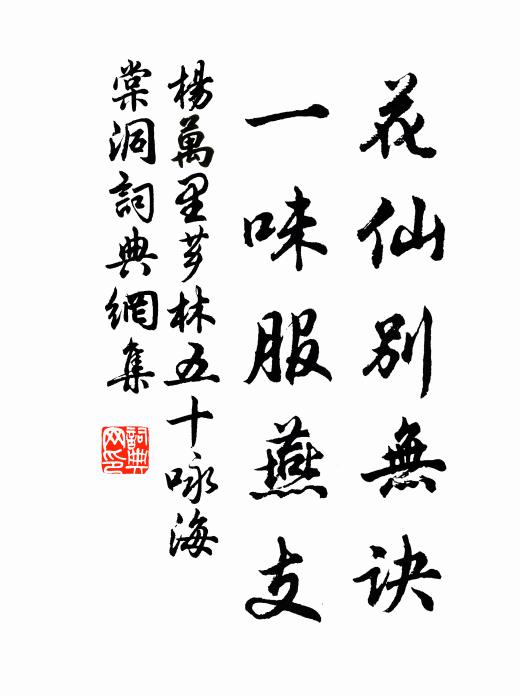 花仙別無訣
一味服燕支
楊萬里芗林五十咏海
棠洞詞典網集
詞典網印